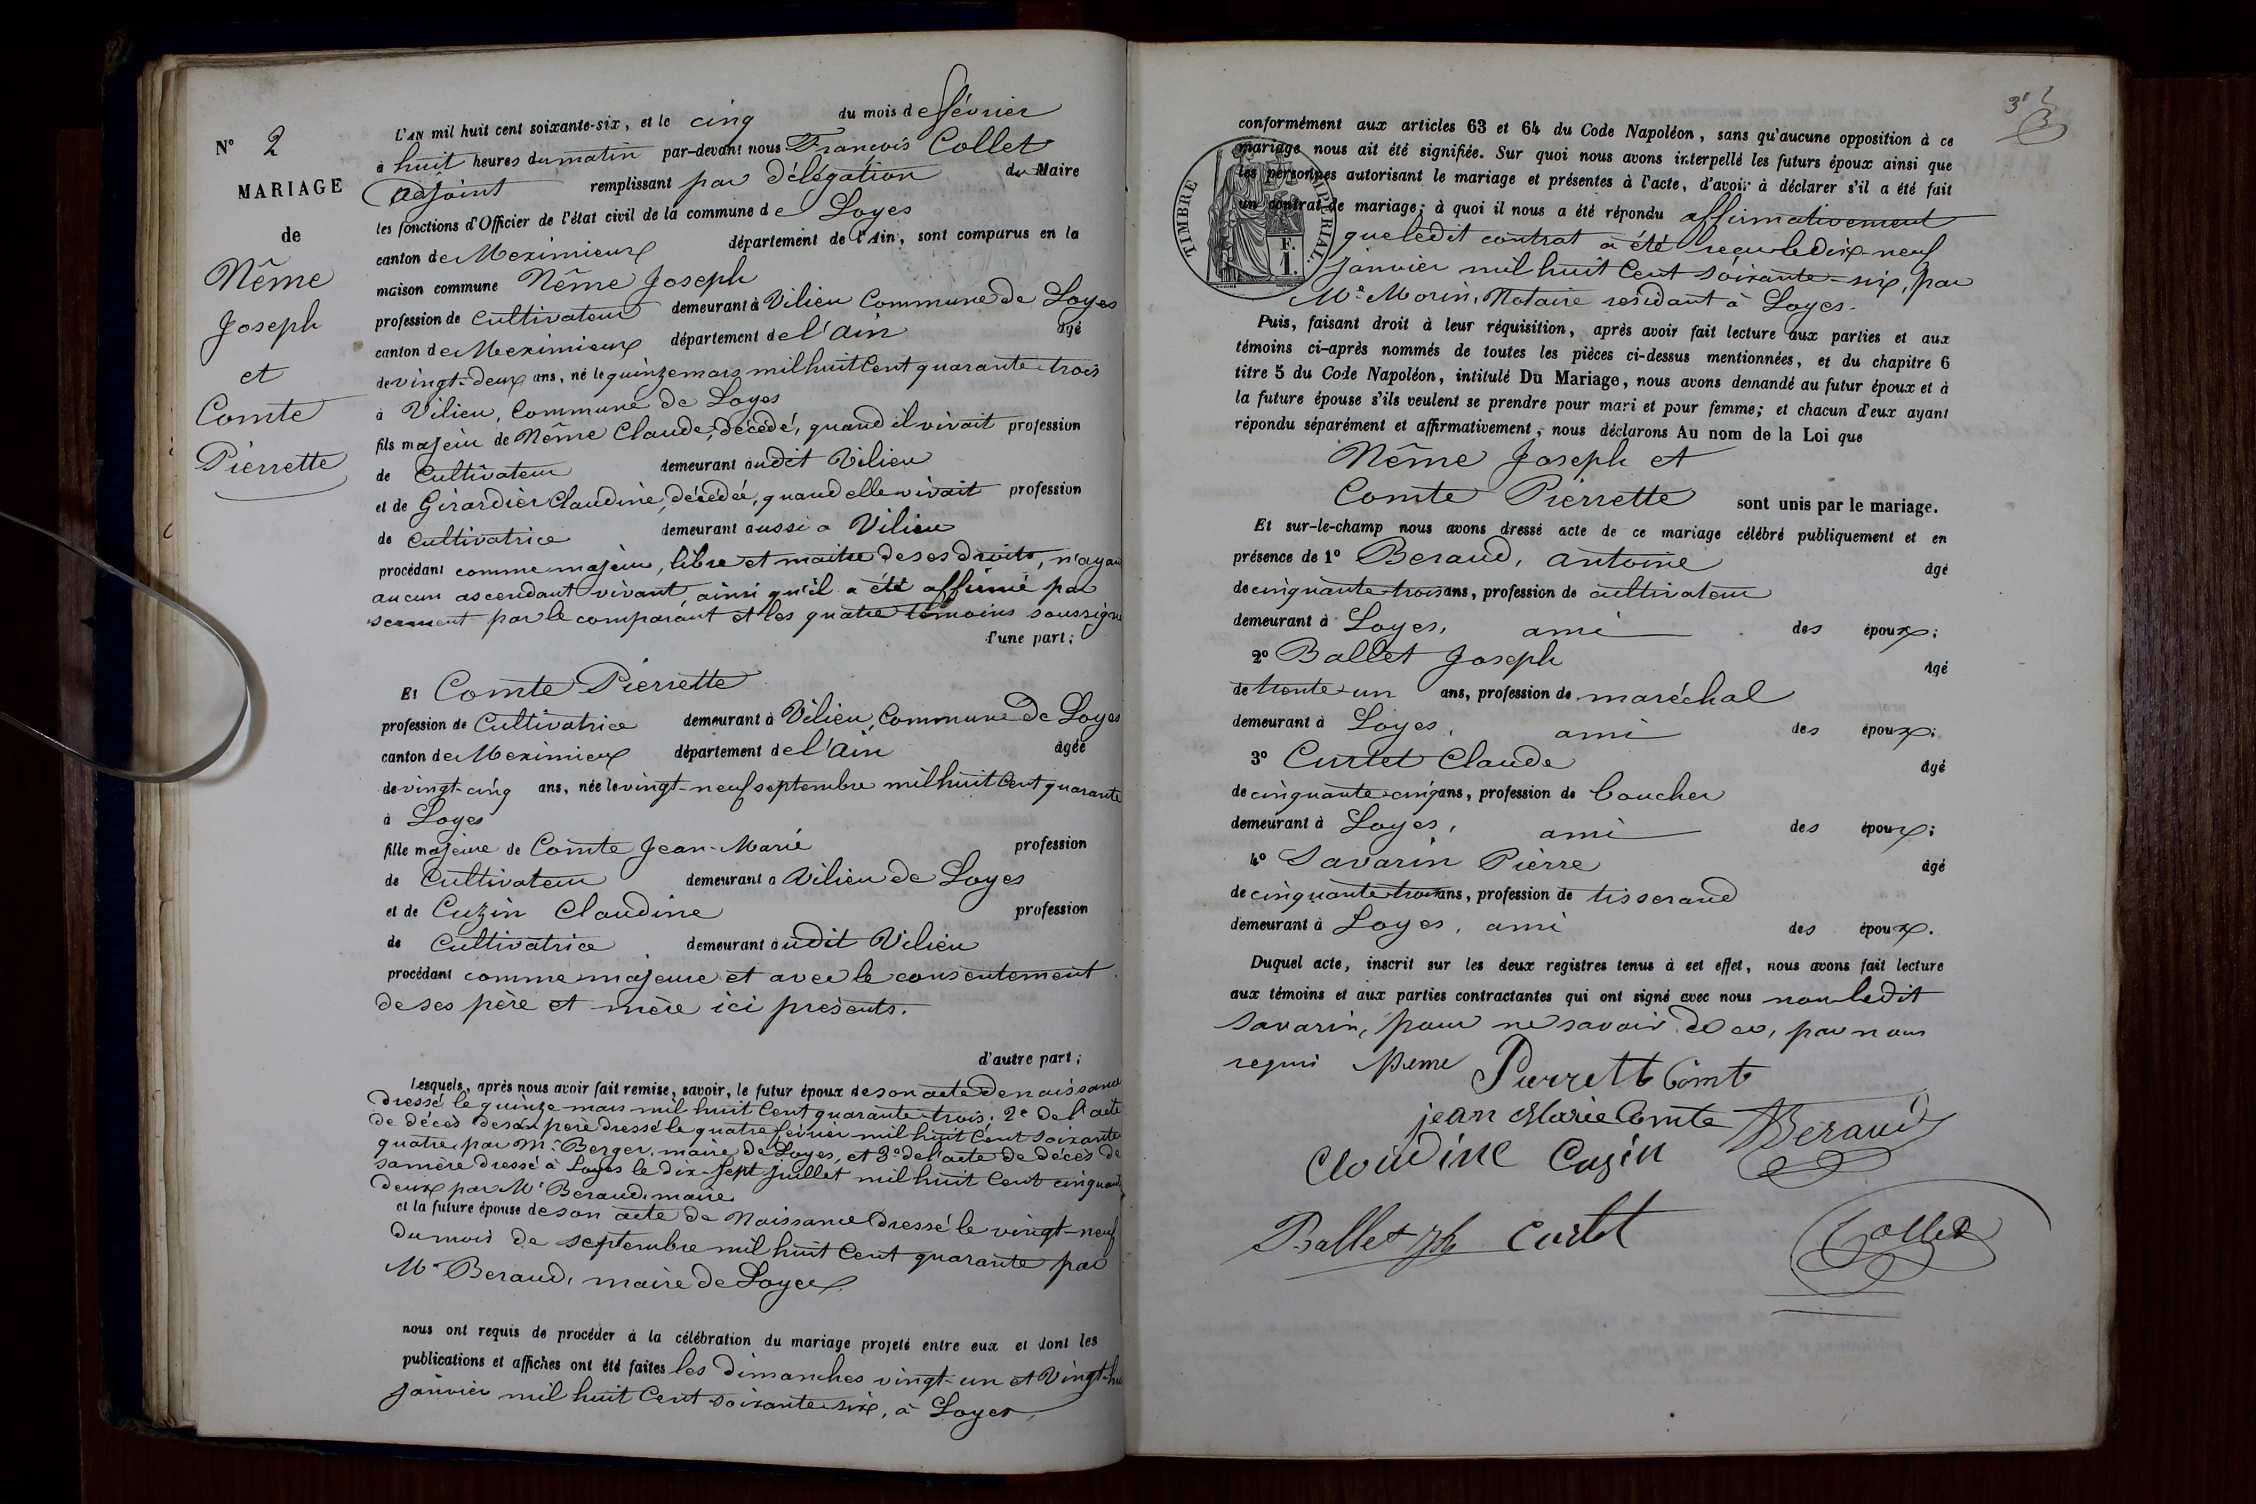 N° 2
MARIAGE
de
Nême
Joseph
et
Comte
Pierrette
L'AN mil huit cent soixante-six, et le cinq du mois de février
à huit heures du matin par-devant nous François Collet
adjoint remplissant par délégation du Maire
les fonctions d'Officier de l'état civil de la commune de Loyes
canton de Meximieux département de l'Ain, sont comparus en la
maison commune Nême Joseph
profession de cultivateur demeurant à Vilieu Commune de Loyes
canton de Meximieux département de l'ain âgé
de vingt-deux ans, né le quinze mars mil huit Cent quarante trois
à Vilieu, Commune de Loyes
fils majeur de Nême Claude, décédé, quand il vivait profession
de Cultivateur demeurant audit Vilieu
et de Girardier Claudine, décédée, quand elle vivait profession
de Cultivatrice demeurant aussi a Vilieu
procédant comme majeur, libre et maitre de ses droits, n'ayan
aucun ascendant vivant ainsi qu'il a été affirmé par
serment par le comparant et les quatre témoins soussigné
d'une part;
Et Comte Pierrette
profession de Cultivatrice demeurant à Vilieu, Commune de Loyes
canton de Meximieux département de l'ain âgée
de vingt-cinq ans, née le vingt-neuf septembre mil huit Cent quarante
à Loyes
fille majeure de Comte Jean-Marie profession
de Cultivateur demeurant a Vilieu de Loyes
et de Cuzin Claudine profession
de Cultivatrice demeurant audit Vilieu
procédant comme majeure et avec le consentement
de ses père et mère ici présents.
d'autre part;
Lesquels, après nous avoir fait remise, savoir, le futur époux de son acte de naissance
dressé le quinze mars mil huit Cent quarante-trois; 2° de l'acte
de décès de son père dressé le quatre février mil huit Cent soixante
quatre par Mr Berger, maire de Loyes, et 3° de l'acte de décès de
sa mère dressé à Loyes le dix-sept juillet mil huit Cent cinquante
deux par Mr Beraud, maire
et la future épouse de son acte de Naissance dressé le vingt-neuf
du mois de septembre mil huit Cent quarante par
Mr Beraud, maire de Loyes
nous ont requis de procéder à la célébration du mariage projeté entre eux et dont les
publications et affiches ont été faites les dimanches vingt-un et Vingt-hu
janvier mil huit Cent soixante-six, à Loyes,
conformément aux articles 63 et 64 du Code Napoléon, sans qu'aucune opposition à ce
mariage nous ait été signifiée. Sur quoi nous avons interpellé les futurs époux ainsi que
les personnes autorisant le mariage et présentes à l'acte, d'avoir à déclarer s'il a été fait
un contrat de mariage; à quoi il nous a été répondu affirmativement
que ledit contrat a été reçu le dix-neuf
janvier mil huit Cent soixante-six, par
Me Morin, Notaire residant à Loyes.
TIMBRE IMPÉRIAL
F.
1.
Puis, faisant droit à leur réquisition, après avoir fait lecture aux parties et aux
témoins ci-après nommés de toutes les pièces ci-dessus mentionnées, et du chapitre 6
titre 5 du Code Napoléon, intitulé Du Mariage, nous avons demandé au futur époux et à
la future épouse s'ils veulent se prendre pour mari et pour femme; et chacun d'eux ayant
répondu séparément et affirmativement, nous déclarons Au nom de la Loi que
Nême Joseph et
Comte Pierrette sont unis par le mariage.
Et sur-le-champ nous avons dressé acte de ce mariage célébré publiquement et en
présence de 1° Beraud, antoine âgé
de cinquante-trois ans, profession de cultivateur
demeurant à Loyes, ami des époux;
2° Ballet Joseph âgé
de trente-un ans, profession de maréchal
demeurant à Loyes, ami des époux;
3° Curtet Claude âgé
de cinquante-cinq ans, profession de boucher
demeurant à Loyes, ami des époux;
4° Savarin Pierre âgé
de cinquante-trois ans, profession de tisserand
demeurant à Loyes, ami des époux.
Duquel acte, inscrit sur les deux registres tenus à cet effet, nous avons fait lecture
aux témoins et aux parties contractantes qui ont signé avec nous non ledit
Savarin, pour ne savoir de ce, par nous
requis Neme Pierrett Comte
jean Marie Comte Beraud
Cloudine Cuzin
Ballet Jh Curtet Collet